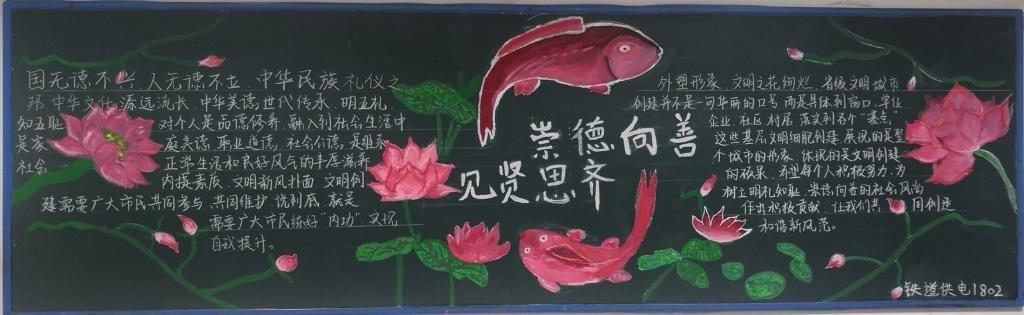 国无德不兴,人无德不立。中华民族礼仪之
邦,中华文化源远流长,中华美德世代传承。明五礼,
知五耻 对个人是品德修养,融入到社会生活中
是家庭美德,职业道德,社会公德,是维系
社会正学生活和良好风气的丰厚滋养
内提素质,文明新风扑面,文明创
建需要广大市民共同参与,共同维护,说到底,就是
需要广大市民练好“内功”实现
自我提升。
崇德向善
见贤思齐
外塑形象,文明之花绚烂。省级文明城市
创建并不是一句华丽的口号,而是具体到窗口、单位
企业、社区、村居,落实到各个“基点”
这些基层文明细胞创建,展现的是整
个城市的形象,体现的是文明创建
的效果。希望每个人积极努力,为
树立明礼知耻、崇德向善的社会风尚
作出积极贡献,让我们共同创建
和谐新风范。
铁道供电1802